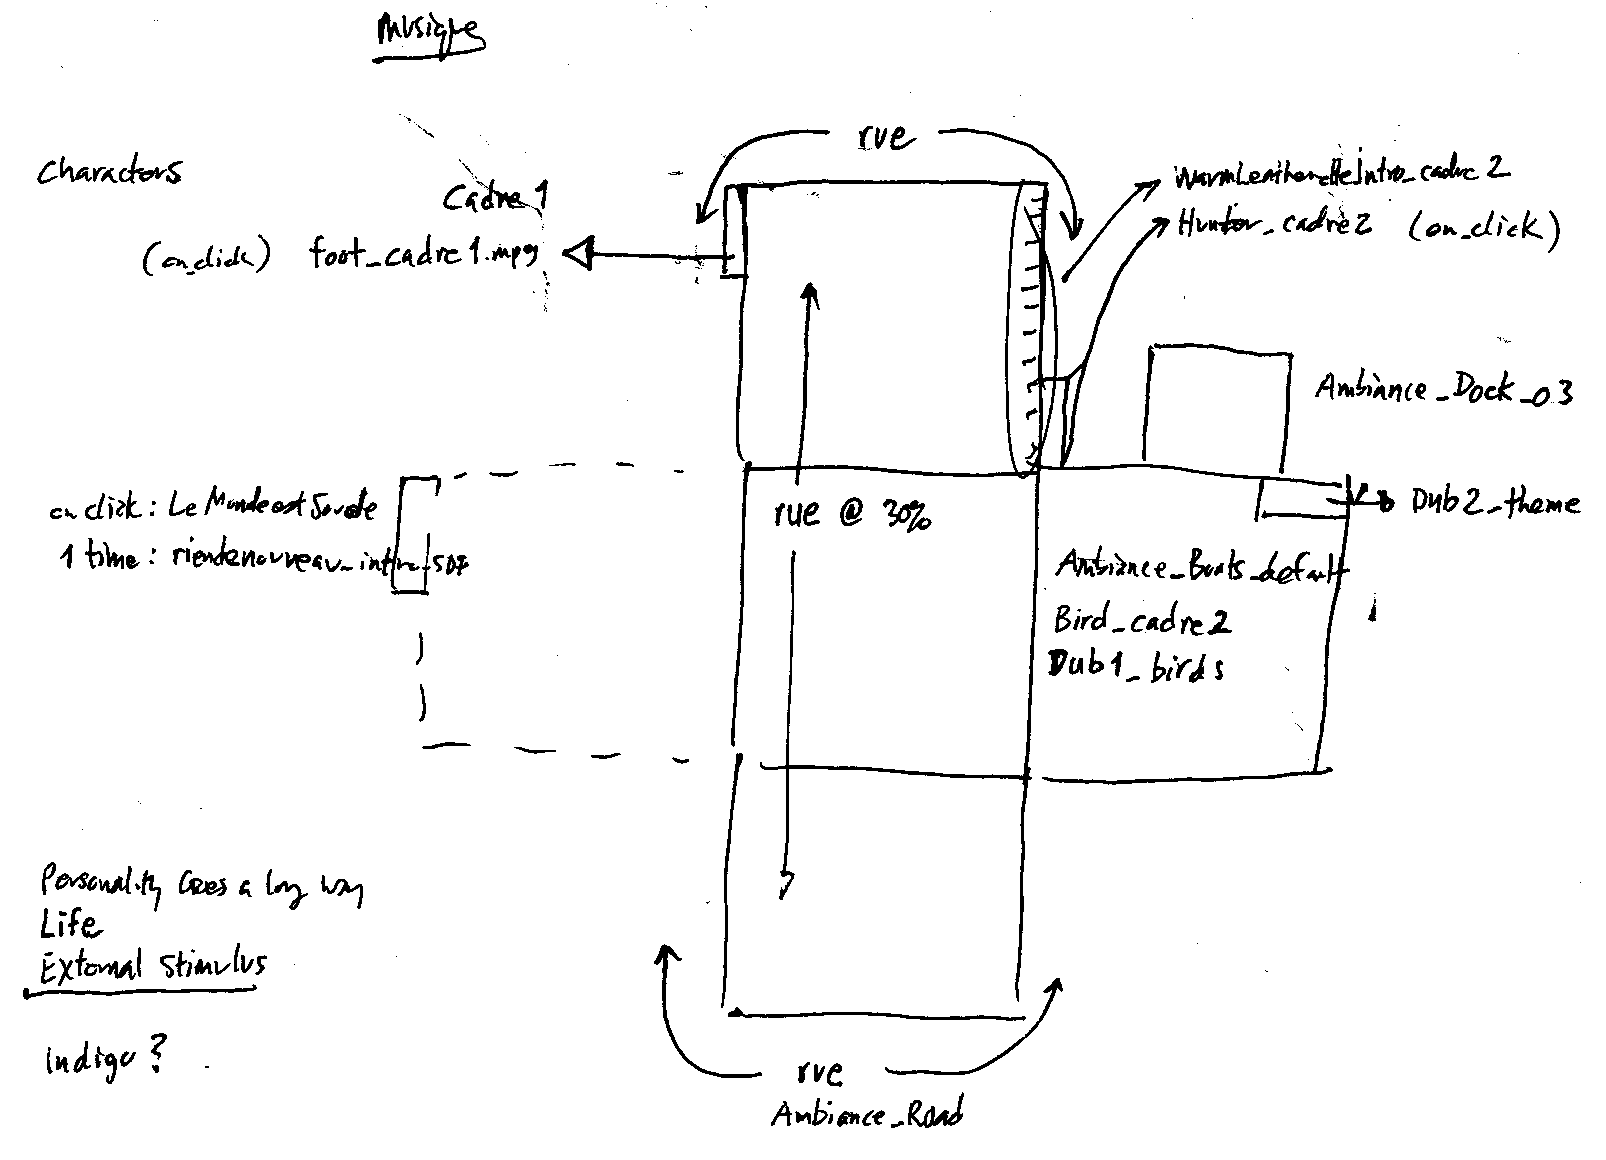 Musique
rue
Charactors
Cadre 1
(on_click) foot_cadre1.mpg
WarmLeatheretteIntro_cadre2
Hunter_cadre2 (on_click)
Ambiance_Dock_03
on click : Le Monde est Sourde
1 time : riendenouveau_intro_SDF
rue @ 30%
Dub2_theme
Ambiance_Boats_default
Bird_cadre2
Dub1_birds
Personality Goes a long way
Life
External Stimulus
Indigo ?
rue
Ambiance_Road